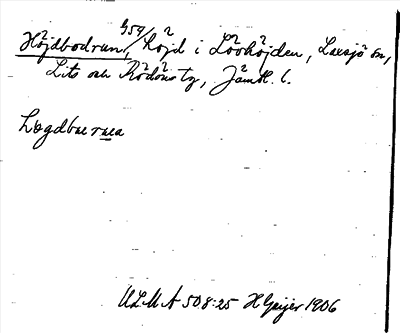 Höjdbodrun, 959/ höjd i Lövhöjden, Laxsjö sn,
Lits och Rödöns tg, Jämtl. l.
Hogdburuea
ULMA 508:25 H Geijer 1906